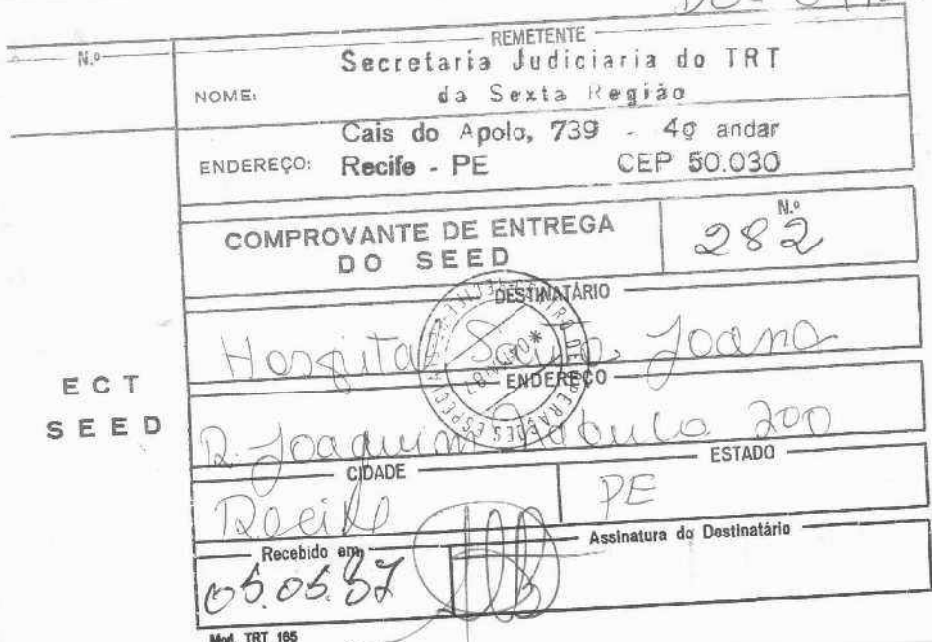 N.º
REMETENTE
NOME: Secretaria Judiciaria do TRT
da Sexta Região
ENDEREÇO: Cais do Apolo, 739 - 4º andar
Recife - PE CEP 50.030
COMPROVANTE DE ENTREGA
DO SEED
N.º
282
DESTINATÁRIO
Hospital Santa Joana
ENDEREÇO
R. Joaquim Nabuco 200
CIDADE
Recife
ESTADO
PE
Recebido em
05.05.87
Assinatura do Destinatário
ECT
SEED
Mod. TRT 165